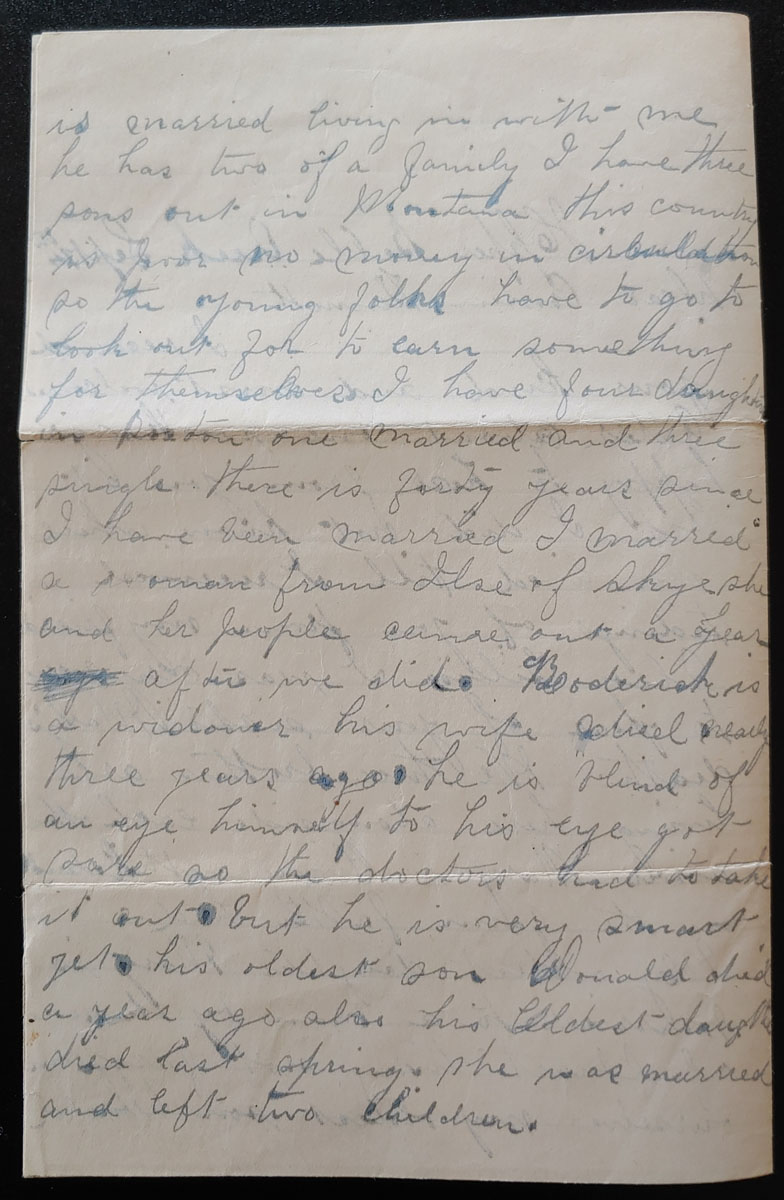 is married living in with me
he has two of a family I have three
sons out in Montana this country
is poor no money in cirbulation
so the young folks have to go to
look out for to earn something
for themselves I have four daughters
in Boston one married and three
single there is forty years since
I have been married I married
a woman from Ilse of Skye she
and her people came out a year
after we did. Roderick is
a widower his wife died nearly
three years ago he is blind of
an eye himself to his eye got
sore so the doctors had to take
it out but he is very smart
yet his oldest son Donald died
a year ago also his Eldest daughter
died last spring. she was married
and left two children.